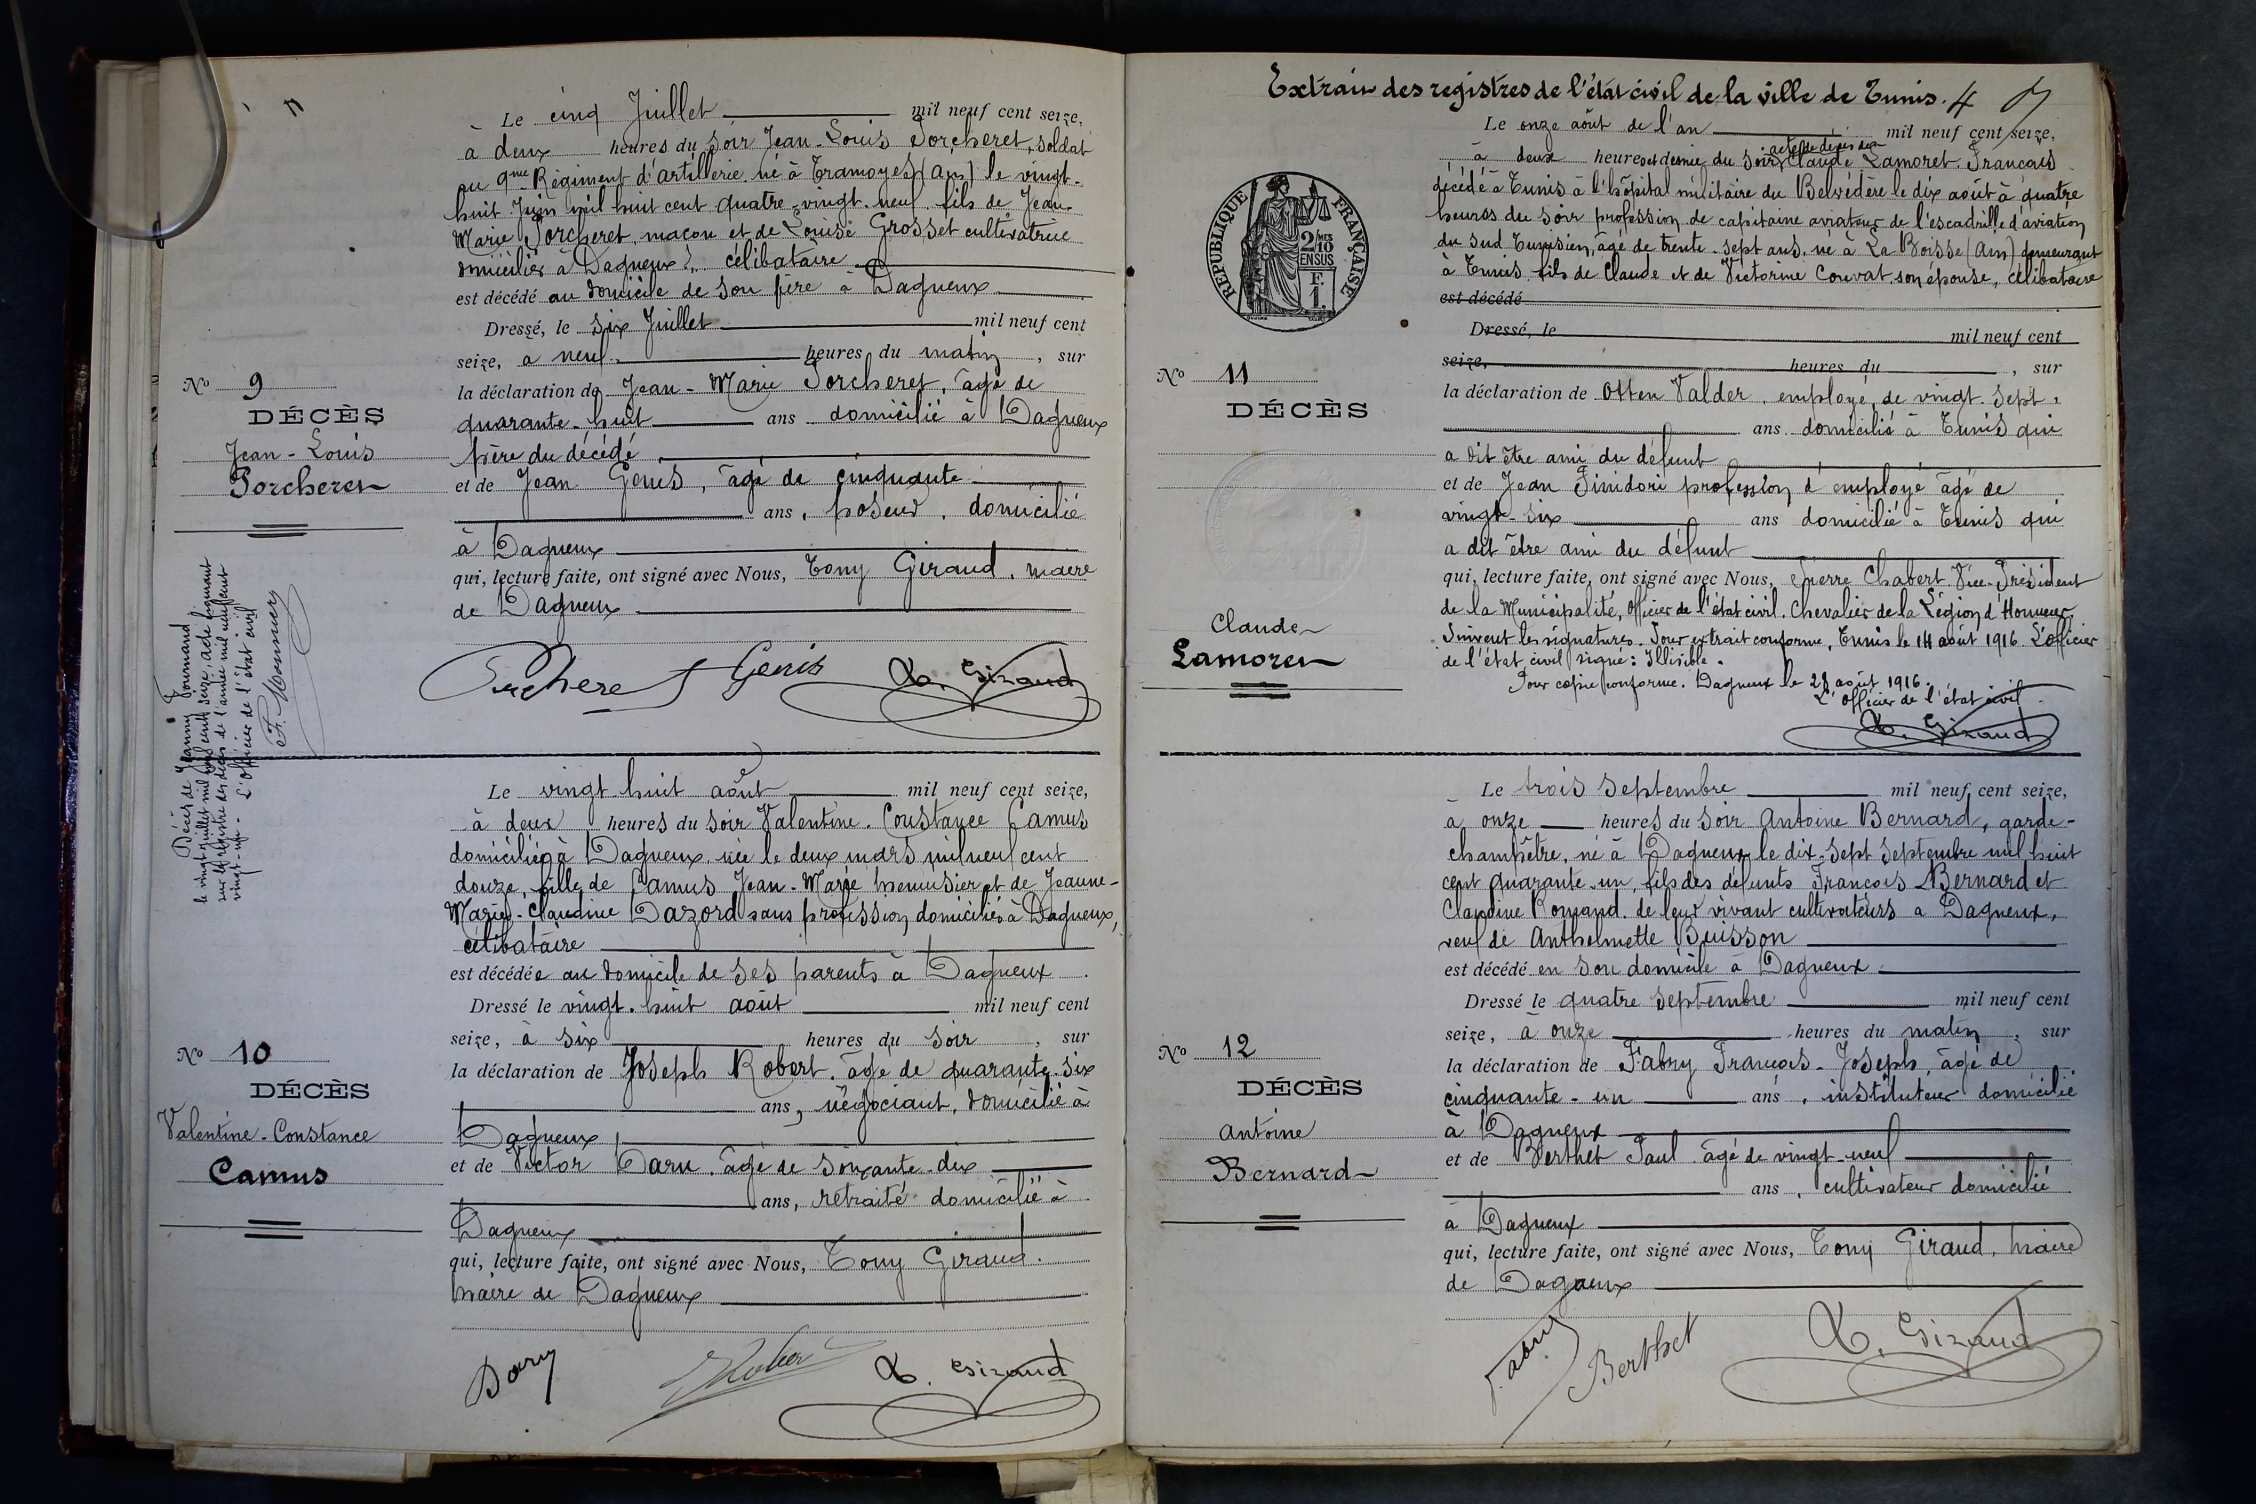 Le cinq Juillet mil neuf cent seize,
à deux heures du soir Jean-Louis Porcheret, soldat
au 9me Régiment d'artillerie né à Tramoyes (Ain) le vingt-
huit Juin mil huit cent quatre-vingt-neuf fils de Jean-
Marie Porcheret, maçon et de Louise Grosset cultivatrice
domiciliés à Dagneux, célibataire
est décédé au domicile de son père à Dagneux
Dressé, le six Juillet mil neuf cent
seize, à neuf heures du matin, sur
la déclaration de Jean-Marie Porcheret, âgé de
quarante-huit ans domicilié à Dagneux
père du décédé
et de Jean Genis, âgé de cinquante
ans, poseur, domicilié
à Dagneux
qui, lecture faite, ont signé avec Nous, Tony Giraud, maire
de Dagneux
Porcheret Genis T. Giraud
No 9
DÉCÈS
Jean-Louis
Porcheret
Décès de Jeanny Journand
le vingt juillet mil neuf cent seize, acte
sur les registres des décès de l'année mil neuf cent
vingt-un - L'Officier de l'état civil
Le vingt-huit août mil neuf cent seize,
à deux heures du soir Valentine-Constance Camus
domiciliée à Dagneux, née le deux mars mil neuf cent
douze, fille de Camus Jean-Marie menuisier et de Jeanne-
Marie-Claudine Dazord sans profession domiciliés à Dagneux,
célibataire
est décédée au domicile de ses parents à Dagneux.
Dressé le vingt-huit août mil neuf cent
seize, à six heures du soir, sur
la déclaration de Joseph Robert, âgé de quarante-six
ans, négociant, domicilié à
Dagneux
et de Victor Dary, âgé de soixante-dix
ans, retraité domicilié à
Dagneux
qui, lecture faite, ont signé avec Nous, Tony Giraud.
maire de Dagneux
Dary Robert T. Giraud
No 10
DÉCÈS
Valentine-Constance
Camus
Extrait des registres de l'état civil de la ville de Tunis. 4
Le onze août de l'an mil neuf cent seize,
à deux heures et demie du soir, acte de décès de Claude Lamoret Français
décédé à Tunis à l'hôpital militaire du Belvédère le dix août à quatre
heures du soir profession de capitaine aviateur de l'escadrille d'aviation
du sud Tunisien, âgé de trente-sept ans, né à La Boisse (Ain) demeurant
à Tunis fils de Claude et de Victorine Convat son épouse, célibataire
est décédé
Dressé, le mil neuf cent
seize, heures du , sur
la déclaration de Otten Valder, employé, de vingt-sept
ans domicilié à Tunis qui
a dit être ami du défunt
et de Jean Finidori profession d'employé âgé de
vingt-six ans domicilié à Tunis qui
a dit être ami du défunt
qui, lecture faite, ont signé avec Nous, Pierre Chabert Vice-Président
de la Municipalité, Officier de l'état civil. Chevalier de la Légion d'Honneur
Suivent les signatures. Pour extrait conforme, Tunis le 14 août 1916. L'Officier
de l'état civil signé: Illisible.
Pour copie conforme. Dagneux le 28 août 1916.
L'Officier de l'état civil.
T. Giraud
RÉPUBLIQUE FRANÇAISE
2/10MES
EN SUS
F.
1.
No 11
DÉCÈS
Claude
Lamoret
Le trois septembre mil neuf cent seize,
à onze heures du soir Antoine Bernard, garde-
champêtre, né à Dagneux le dix-sept septembre mil huit
cent quarante-un, fils des défunts François Bernard et
Claudine Romand de leur vivant cultivateurs à Dagneux,
veuf de Anthelmette Buisson
est décédé en son domicile à Dagneux
Dressé le quatre septembre mil neuf cent
seize, à onze heures du matin, sur
la déclaration de Fabry François-Joseph, âgé de
cinquante-un ans, instituteur domicilié
à Dagneux
et de Berthet Paul âgé de vingt-neuf
ans, cultivateur domicilié
à Dagneux
qui, lecture faite, ont signé avec Nous, Tony Giraud, maire
de Dagneux
F. Fabry Berthet T. Giraud
No 12
DÉCÈS
Antoine
Bernard